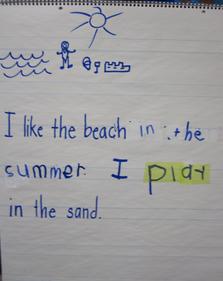 I like the beach in the
summer. I play
in the sand.